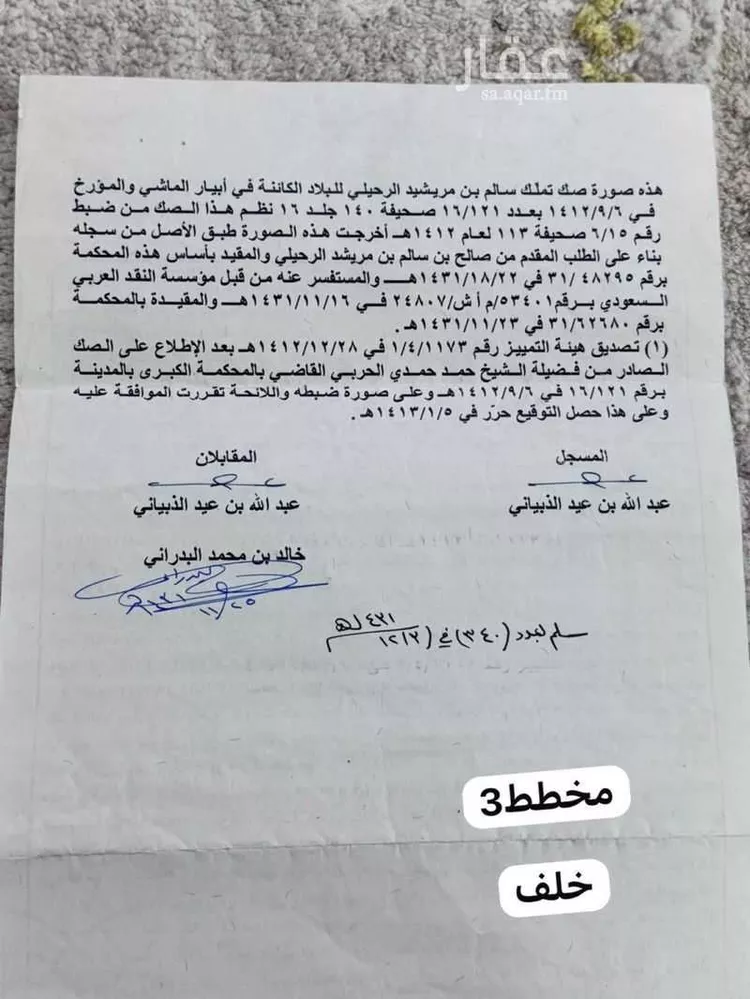 عقار
sa.aqar.fm
هذه صورة صك تملك سالم بن مريشيد الرحيلي للبلاد الكائنة في أبيار الماشي والمؤرخ
في ١٤١٢/٩/٦ بعدد ١٦/١٢١ صحيفة ١٤٠ جلد ١٦ نظم هذا الصك من ضبط
رقم ٦/١٥ صحيفة ١١٣ لعام ١٤١٢هـ أخرجت هذه الصورة طبق الأصل من سجله
بناء على الطلب المقدم من صالح بن سالم بن مريشد الرحيلي والمقيد بأساس هذه المحكمة
برقم ٣١/٤٨٢٩٥ في ١٤٣١/١٨/٢٢هـ والمستفسر عنه من قبل مؤسسة النقد العربي
السعودي برقم ٥٣٤٠١/م أ ش/٢٤٨٠٧ في ١٤٣١/١١/١٦هـ والمقيدة بالمحكمة
برقم ٣١/٦٢٦٨٠ في ١٤٣١/١١/٢٣هـ .
(١) تصديق هيئة التمييز رقم ١/٤/١١٧٣ في ١٤١٢/١٢/٢٨هـ بعد الإطلاع على الصك
الصادر من فضيلة الشيخ حمد حمدي الحربي القاضي بالمحكمة الكبرى بالمدينة
برقم ١٦/١٢١ في ١٤١٢/٩/٦هـ وعلى صورة ضبطه واللائحة تقررت الموافقة عليه
وعلى هذا حصل التوقيع حرّر في ١٤١٣/١/٥هـ .
المسجل المقابلان
عبد الله بن عيد الذبياني عبد الله بن عيد الذبياني
خالد بن محمد البدراني
١١/٢٥
سلم لعدد (٣٤٠) في ١٢/٣
مخطط3
خلف